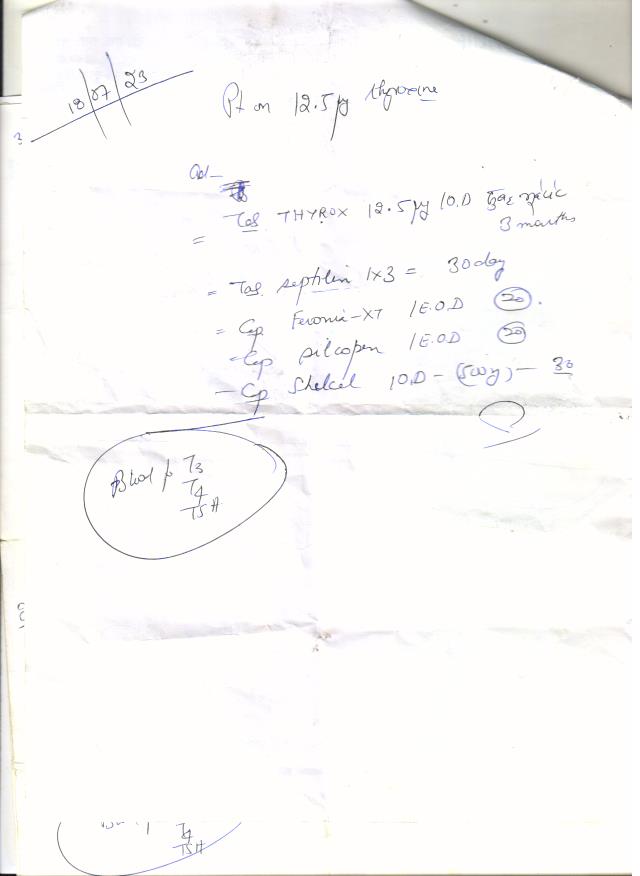 18/07/23
Pt on 12.5 µg thyroxine
Ad-
= Tab THYROX 12.5 µg 10.D
3 months
= Tab. Septilin 1x3 = 30 day
= Cap Feronia-XT 1 E.O.D 20.
- Cap 1 E.O.D 20
- Cap Shelcal 10.D - (500g) - 30
Blood for T3
T4
TSH
T4
TSH